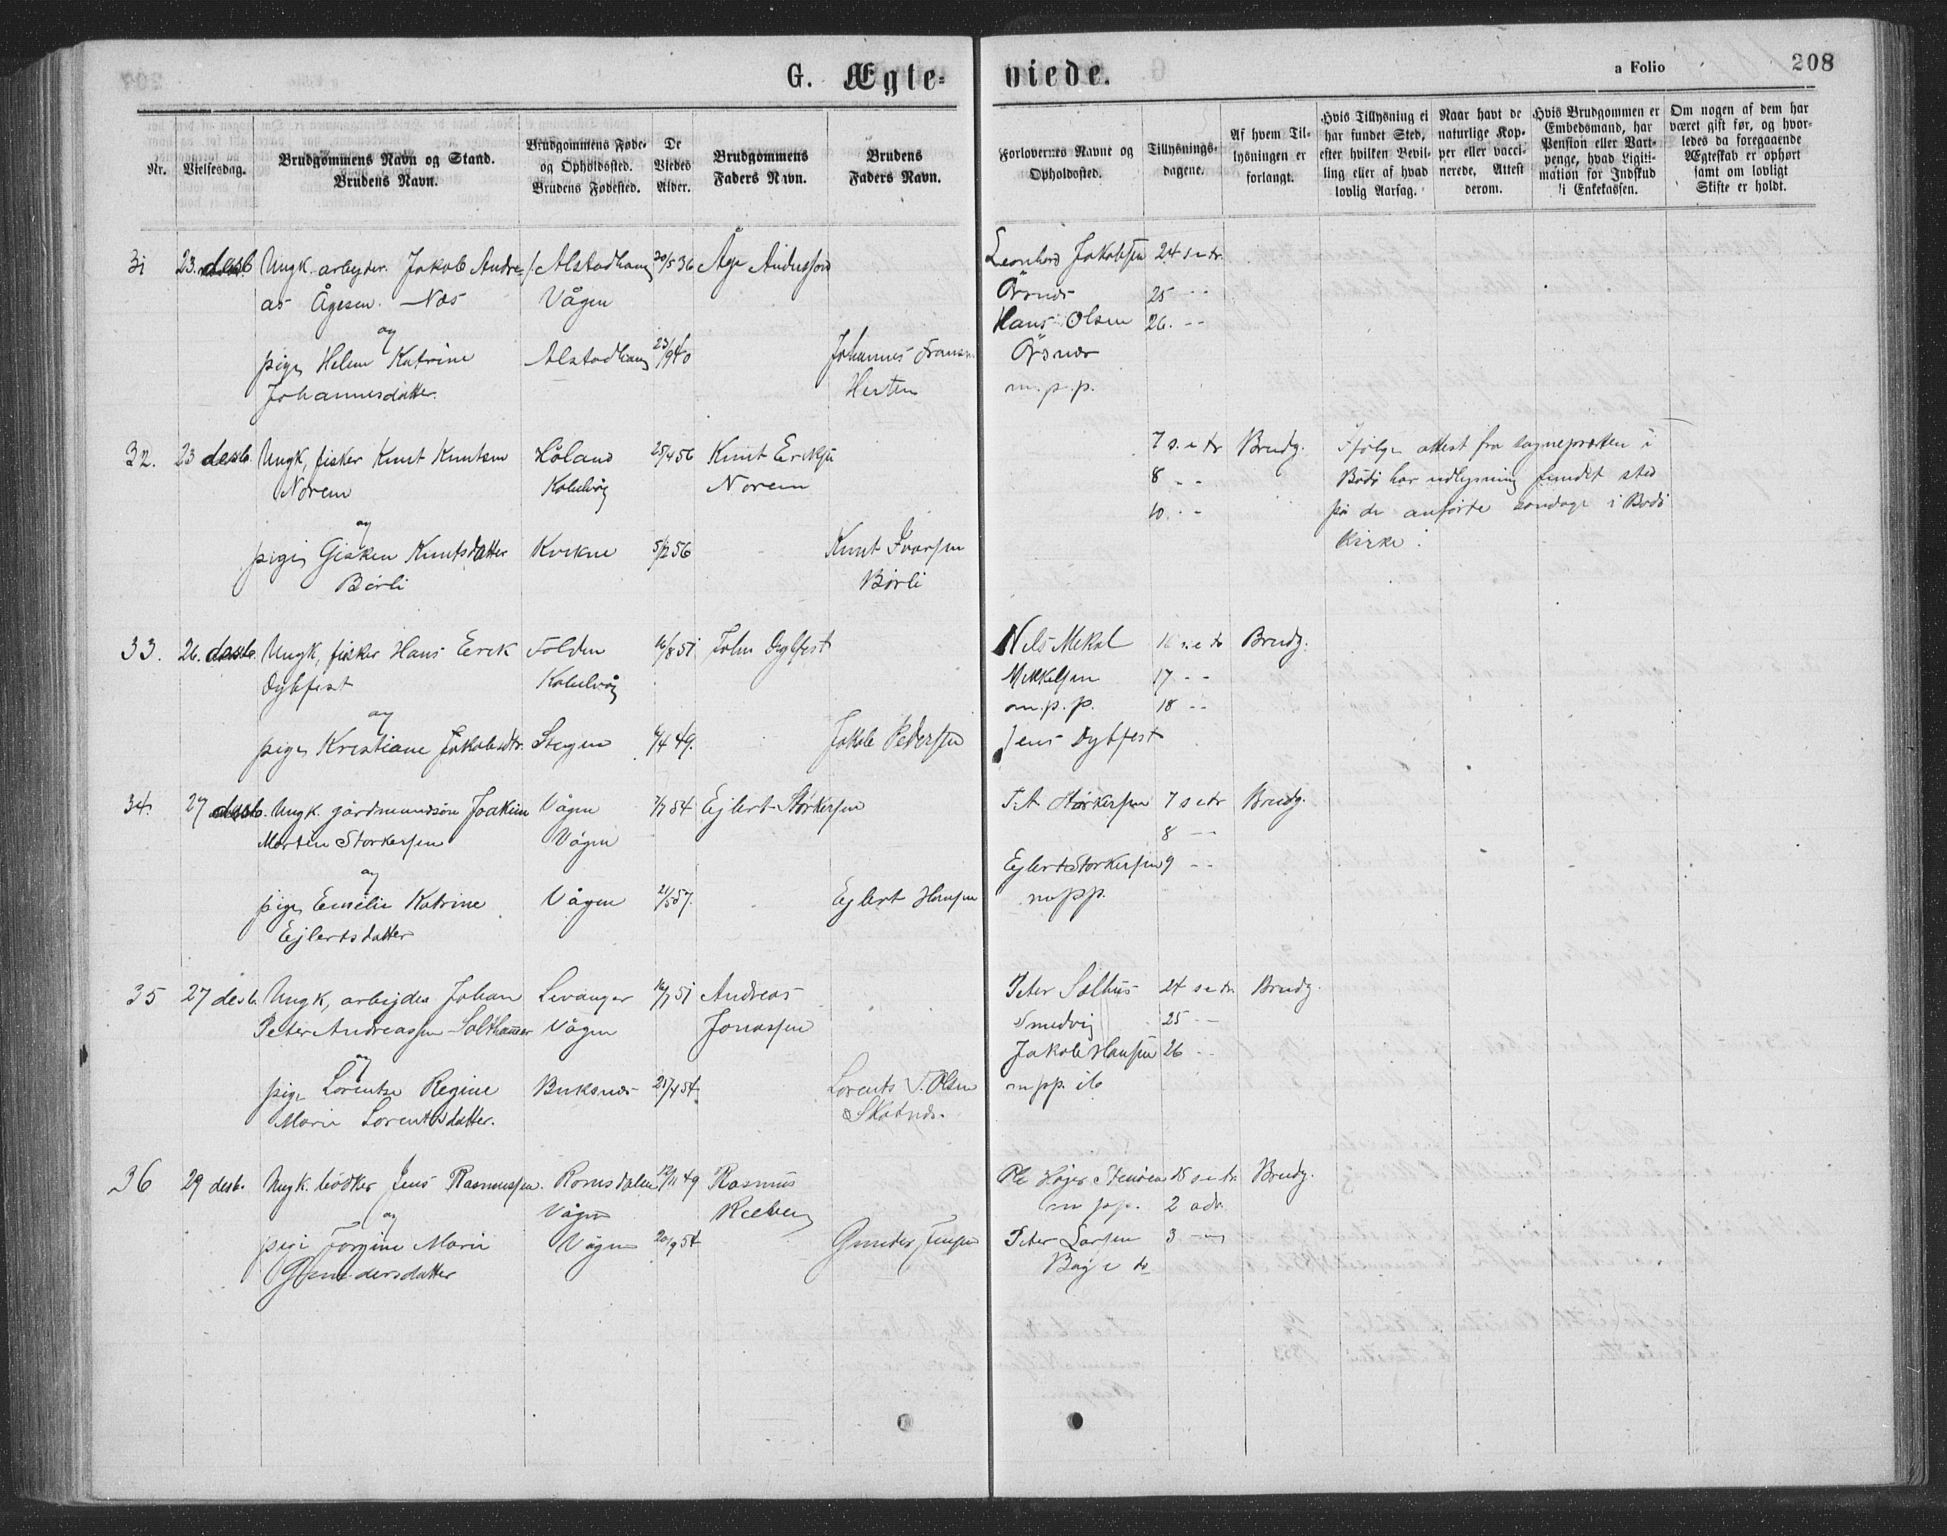 G. Ægte-
viede.
a Folio
208
Nr.
Vielsesdag.
Brudgommens Navn og Stand.
Brudens Navn.
Brudgommens Føde-
og Opholdssted.
Brudens Fødested.
De
Viedes
Alder.
Brudgommens
Faders Navn.
Brudens
Faders Navn.
Forlovernes Navne og
Opholdssted.
Tillysnings-
dagene.
Af hvem Til-
lysningen er
forlangt.
Hvis Tillysning ei
har fundet Sted,
efter hvilken Bevil-
ling eller af hvad
lovlig Aarsag.
Naar havt de
naturlige Kop-
per eller vacci-
nerede, Attest
derom.
Hvis Brudgommen er
Embedsmand, har
Pension eller Vart-
penge, hvad Ligiti-
mation for Indskud
i Enkekassen.
Om nogen af dem har
været gift før, og hvor-
ledes da foregaaende
Ægteskab er ophørt
samt om lovligt
Skifte er holdt.
31 23. desb Ungk. arbejder. Jakob Andre- Alstadhaug 20/5 36 Åge Anderssen Leonhard Jakobsen 24 s e tr.
as Ågesen. Næs Vågen Örsnes 25 - -
og Hans Olsen 26. - -
pige Helene Katrine Alstadhaug 23/9 40 Johannes Fransen Örsnes
Johannesdatter. Herten m. p. p.
32. 23 desb. Ungk, fisker Knut Knutsen Löland 25/4 56 Knut Eriksen 7 s. e tr Brudg. Ifølge attest fra sognepresten i
Norem Kabelvåg Norem 8 - - Bodö har udlysning fundet sted
og 10. - - på de anförte söndage i Bodö
pige Gisken Knutsdatter Kvikne 5/12 56 Knut Ivarsen kirke.
Börli Börli
33. 26. desb. Ungk, fisker Hans Erik Folden 16/8 51 John Dybfest Nils Mekal 16 s. e tr Brudg.
Dybfest Kabelvåg Mikkelsen 17 - -
og m. p. p. 18 - -
pige Kristiane Jakobsdtr. Stegen 6/4 49. Jakob Pedersen Jens Dybfest
34. 27 desb. Ungk. gårdmandssön Joakim Vågen 7/7 54 Ejlert Störkersen J. A Störkersen 7 s e tr Brudg.
Morten Storkersen Vågen 8 - -
og Ejlert Storkersen 9 - -
pige Emelie Katrine Vågen 21/5 57. Ejlert Hansen m pp.
Ejlertsdatter
35 27 desb. Ungk, arbejder Johan Levanger 16/7 51 Andreas Peter Solhus 24 s e tr. Brudg.
Peter Andreassen Salthammer Vågen Jonassen Smedvig 25 - -
og Jakob Hansen 26 - -
pige Lorentse Regine Buksnes 25/4 54. Lorents T. Olsen m pp. ib
Marie Lorentsdatter. Skotnes.
36 29 desb. Ungk. bödker Jens Rasmussen. Romsdalen 12/11 49 Rasmus Ole Højer 25 s e tr. Brudg.
og Vågen m pp. 2 adv.
pige Jörgine Marie Vågen 20/9 54 Gunder Jensen Peter Larsen 3 - -
Gundersdatter